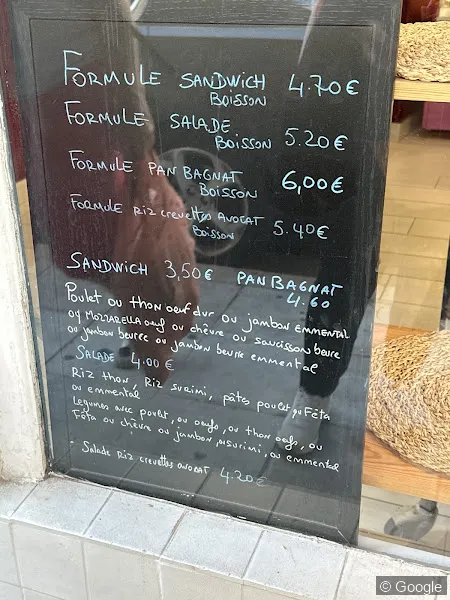 FORMULE SANDWICH 4.70€
BOISSON
FORMULE SALADE
BOISSON 5.20€
FORMULE PAN BAGNAT 6,00€
BOISSON
FORMULE RIZ CREVETTES AVOCAT 5.40€
BOISSON
SANDWICH 3,50€ PAN BAGNAT
4.60
Poulet ou thon œuf dur ou jambon emmental
ou MOZZARELLA œuf ou chèvre ou saucisson beurre
ou jambon beurre ou jambon beurre emmental
SALADE 4.00€
Riz thon, Riz surimi, pâtes poulet, ou Féta
ou emmental
Légumes avec poulet, ou oeufs, ou thon oeufs, ou
Féta ou chèvre ou jambon, ou surimi, ou emmental
- Salade Riz crevettes avocat 4.20€
© Google